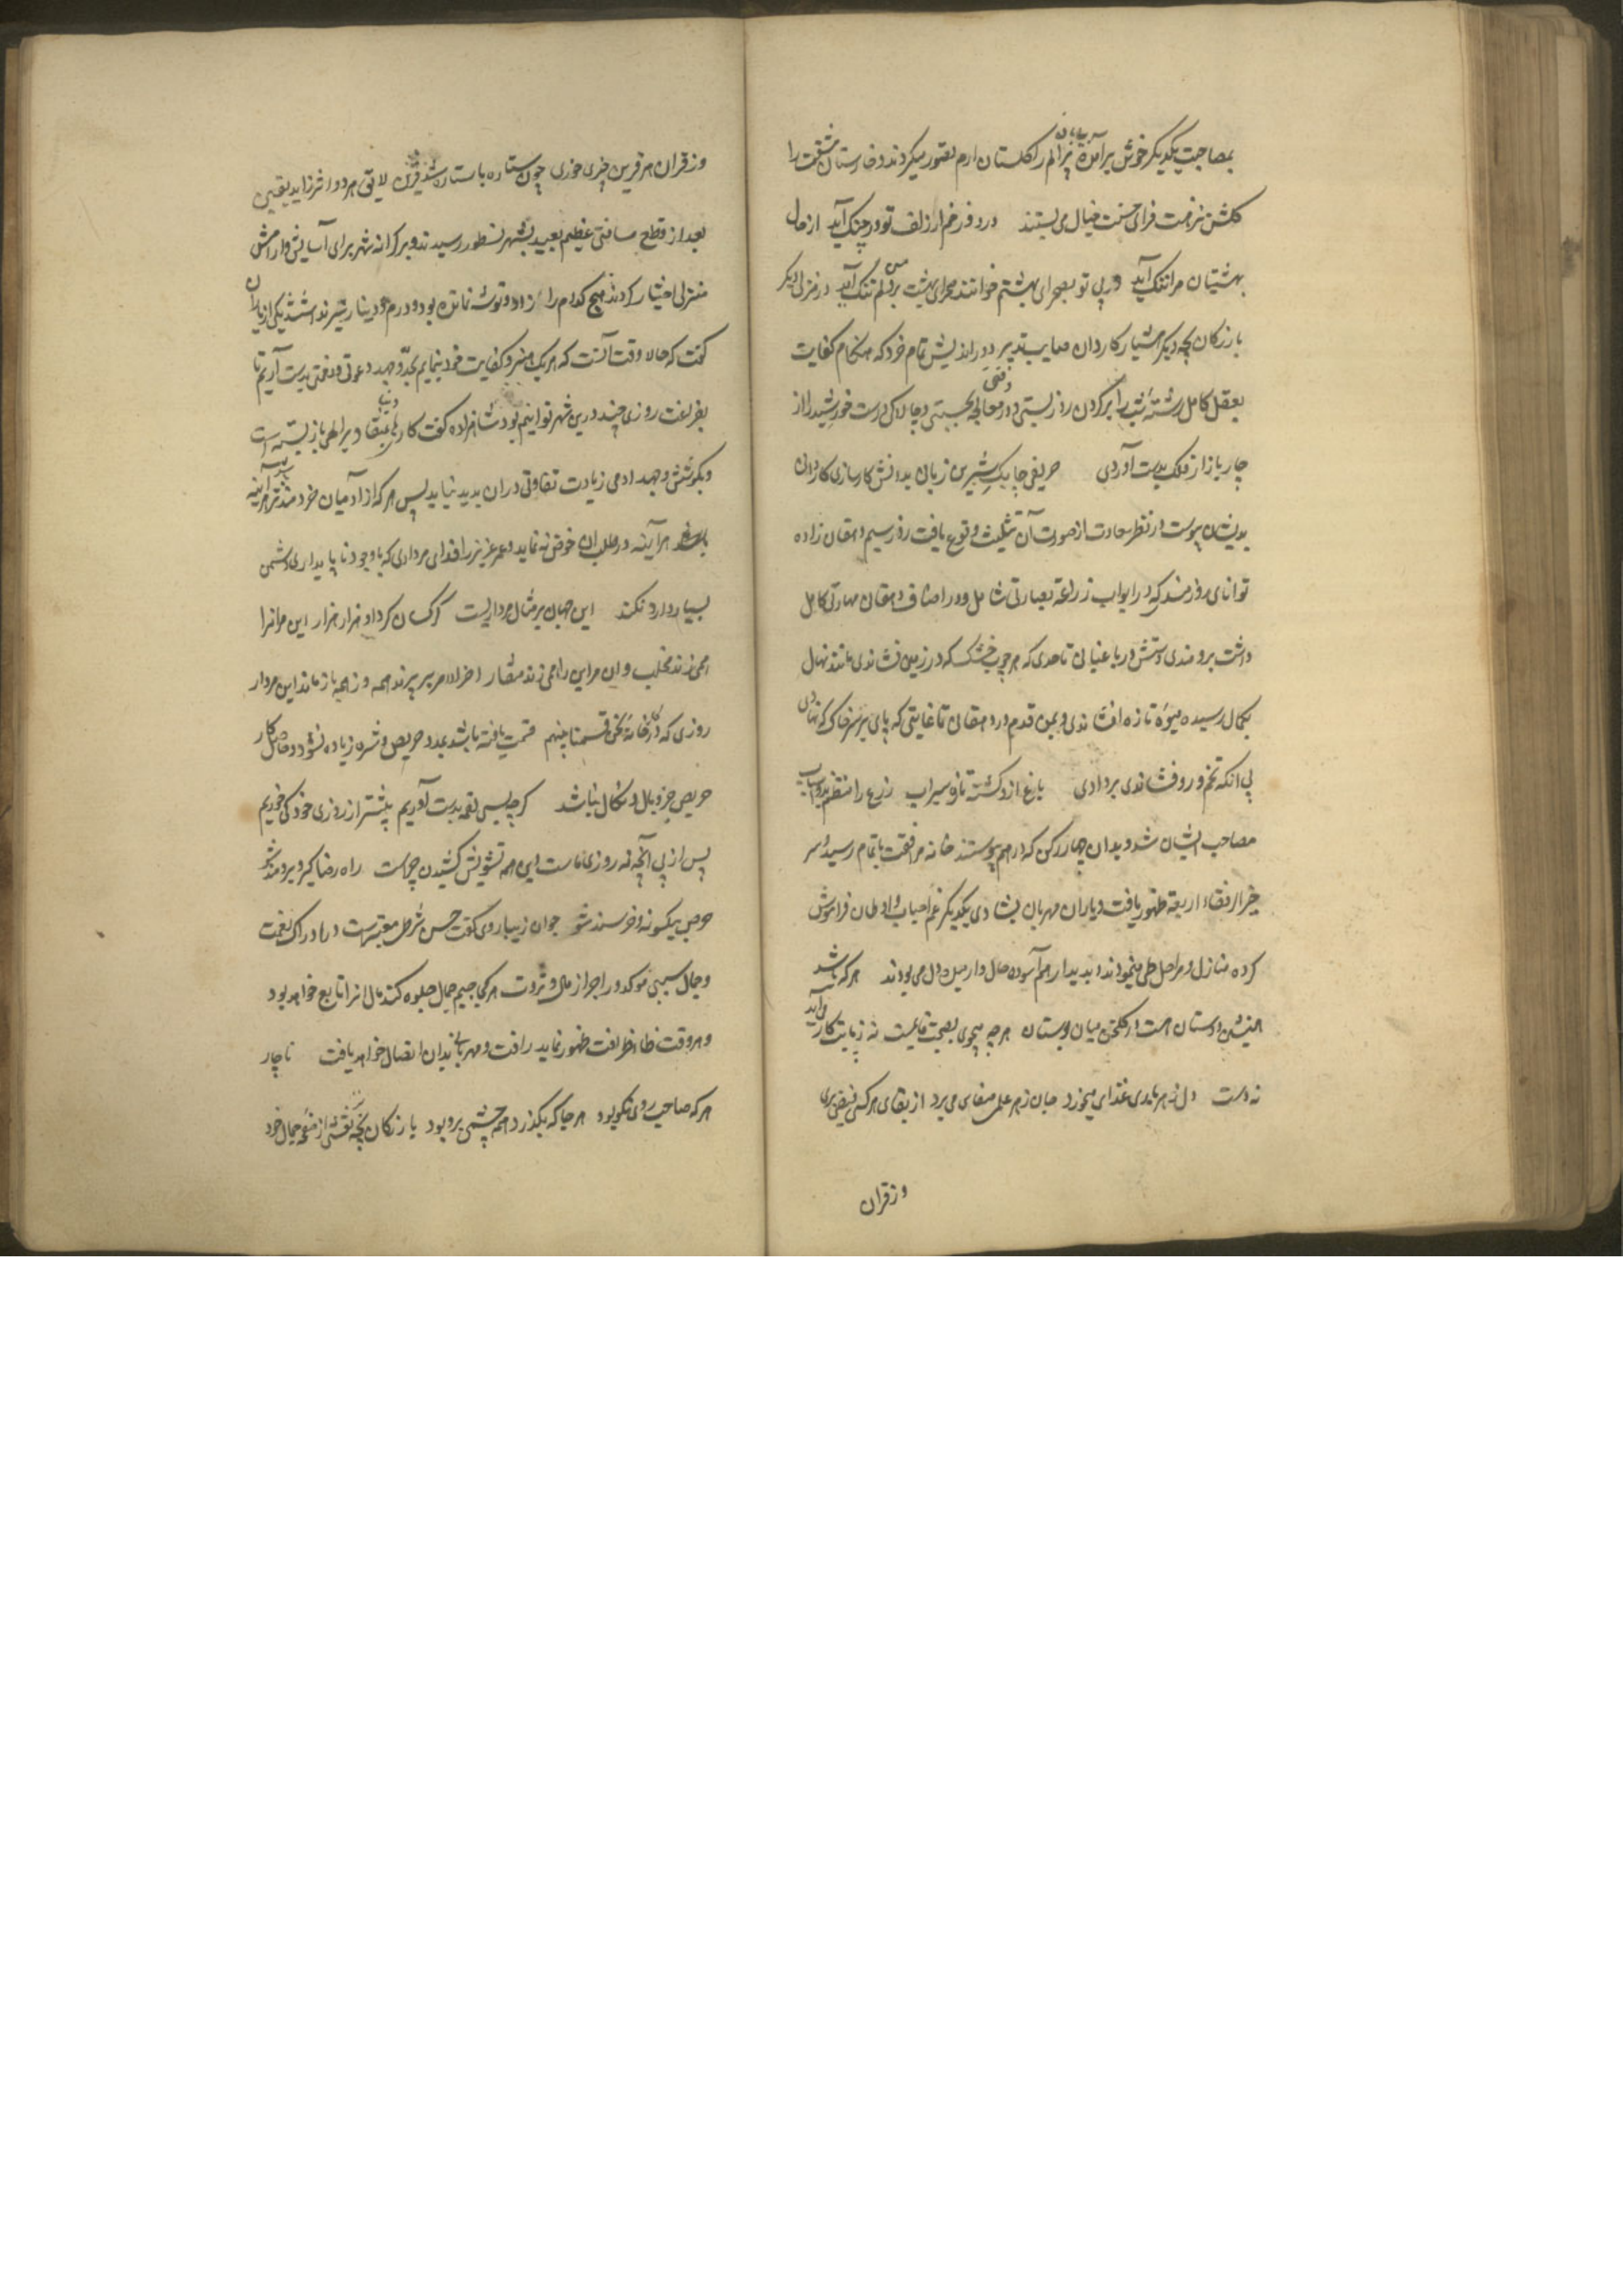 بمصاحبت یکدیگر خوش برآمده بیابان پر الم را گلستان ارم تصور میکردند و خارستان مشقت را
گلشن نزهت فزای جنت خیال می بستند در دوزخم ار زلف تو در چنگ آید از حال
بهشتیان مرا ننگ آید ور بی تو بصحرای بهشتم خوانند صحرای بهشت بر دلم تنگ آید در منزل دیگر
بازرگان بچه دیگر هشیار کاردان صایب تدبیر دور اندیش تمام خرد که هنگام کفایت
بعقل کامل رشته شب را بر گردن روز بستی و در وقت معامله بچستی و چالاکی درست خورشید را از
چار بازار فلک بدست آوردی حریفی چابک شیرین زبانی بدانش کارسازی کاردانی
بدیشان پیوست و در نظر سعادت از صورت آن تثلیث وقوع یافت روز سیم دهقان زاده
توانای زورمند که در ابواب زراعة بصارتی شامل و در اصناف دهقان مهارتی کامل
داشت برومندی دستش در باغبانی تا حدی که هر چوب خشک که در زمین نشاندی مانند نهال
بکمال رسیده میوهٔ تازه افشاندی و یمن قدم در دهقانی تا غایتی که پای بر سر خاک که نهادی
بی انکه تخم درو فشاندی بر دادی باغ ازو گشته تازه و سیراب زرع را منتظم بدو اسباب
مصاحب ایشان شد و بدان چهار رکن که در هم پیوستند خانه مرافقت باتمام رسید و سر
خیر الرفقاء اربعة ظهور یافت و یاران مهربان بشادی یکدیگر غم احباب و اوطان فراموش
کرده منازل و مراحل طی مینمودند و بدیدار هم آسوده حال و آرمیده دل می بودند هر که باشد
همنشین دوستان هست در گلخن میان بوستان هر چه میجوی بصحبت قایمست نه زبانت کار می آید
نه دست دل ز هر یاری غذای میخورد جان ز هر علمی صفای می برد از بقای هر کسی فیضی بری
وز قران
وز قران هر قرین چیزی خوری چون ستاره با ستاره شد قرین لایق هر دو اثر زاید یقین
بعد از قطع مسافتی عظیم بعید بشهر نسطور رسیدند و بر کرانه شهر برای آسایش و آرامش
منزلی اختیار کردند هیچ کدام را از زاد و توشه نمانده بود و درم و دینار نیز نداشتند یکی از یاران
گفت که حالا وقت آنست که هر یک هنر و کفایت خود بنمایم بجد و جهد دعوتی و نعمتی بدست آریم تا
بفراغت روزی چند درین شهر توانیم بود شاهزاده گفت کارهای دنیا بقضا و قدر الهی باز بسته است
و بکوشش و جهد ادمی زیادت تفاوتی در ان پدید نیاید پس هر که از آدمیان خردمندتر
باشد هر آینه در طلب ان خوض ننماید و عمر عزیز را فدای مرداری که با وجود ناپایداری دشمن
بسیار دارد نکند این جهان بر مثال مرداریست کرکسان گرد او هزار هزار این مرانرا
همی زند مخلب و ان مر این را همی زند منقار اخر الامر بر پرند همه وز همه باز ماند این مردار
روزی که در کارخانه نحن قسمنا بینهم قسمت یافته باشد بمدد حرص و شره زیاده نشود و حاصل کار
حریص جز وبال و نکال نباشد گر چه بسی لقمه بدست آوریم بیشتر از روزی خود کی خوریم
پس از پی آنچه نه روزی ماست این همه تشویش کشیدن چراست راه رضا گیر و برومند شو
حرص بیکسو نه و خرسند شو جوان زیباروی گفت حسن شرطی معتبرست در ادراک نعمت
و جمال سببی موکد در احراز مال و ثروت هر کجا جیم جمال جلوه کند مال انرا تابع خواهد بود
و هر وقت ظاء ظرافت ظهور نماید رافت و مهربانی بدان اتصال خواهد یافت ناچار
هر که صاحب روی نکو بود هر جا که بگذرد همه چشمی برو بود بازرگان بچه نقشی از صفحه جمال خود